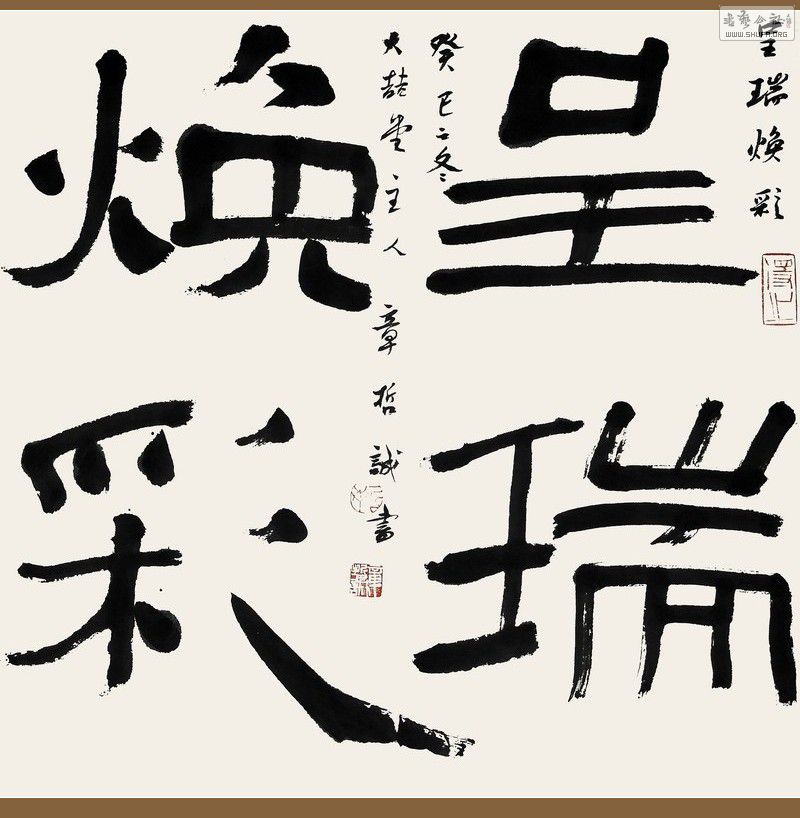 呈瑞焕彩
呈瑞
焕彩
癸巳之冬
大喆堂主人 章哲誠書
WWW.SHUFA.ORG